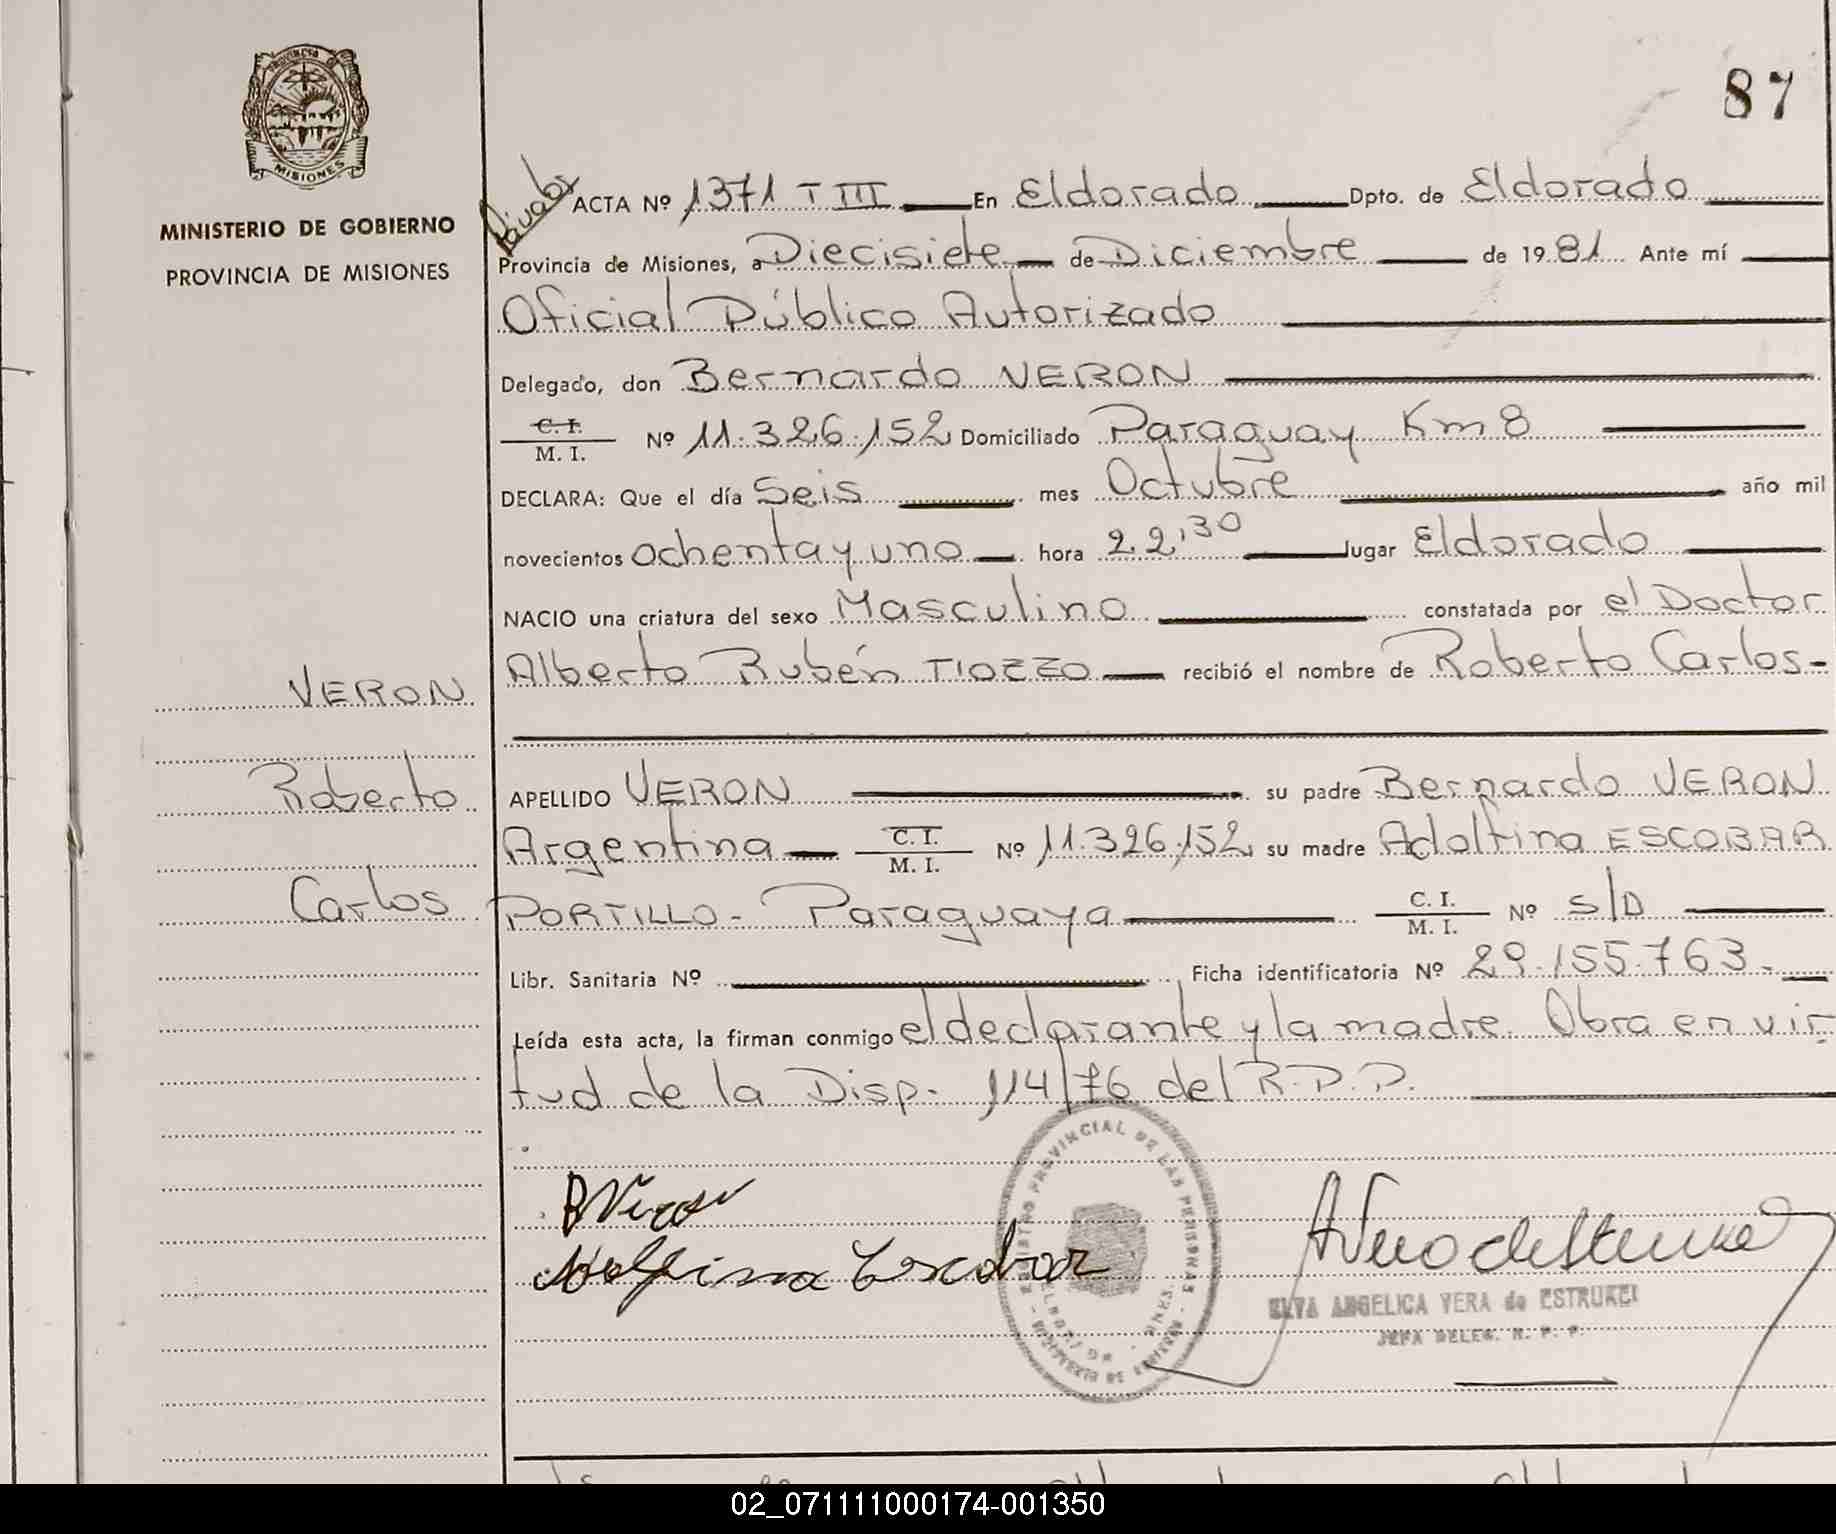 87
PROVINCIA
MISIONES
MINISTERIO DE GOBIERNO
PROVINCIA DE MISIONES
ACTA Nº 1371 T III En Eldorado Dpto. de Eldorado
Provincia de Misiones, a Diecisiete de Diciembre de 1981 Ante mí
Oficial Público Autorizado
Delegado, don Bernardo VERON
C. I.
M. I.
Nº 11.326.152 Domiciliado Paraguay Km 8
DECLARA: Que el día Seis mes Octubre año mil
novecientos ochenta y uno hora 22,30 lugar Eldorado
NACIO una criatura del sexo Masculino constatada por el Doctor
Alberto Rubén TIOZZO recibió el nombre de Roberto Carlos-
VERON
Roberto
Carlos
APELLIDO VERON su padre Bernardo VERON
Argentina C. I.
M. I.
Nº 11.326.152 su madre Adolfina ESCOBAR
PORTILLO- Paraguaya C. I.
M. I.
Nº S/D
Libr. Sanitaria Nº Ficha identificatoria Nº 29.155.763.-
Leída esta acta, la firman conmigo el declarante y la madre. Obra en vir-
tud de la Disp. 114/76 del R.P.P.
REGISTRO PROVINCIAL DE LAS PERSONAS
B Veron
Adolfina Escobar
ELVA ANGELICA VERA de ESTRUKEL
JEFA DELEG. R. P. P.
02_071111000174-001350